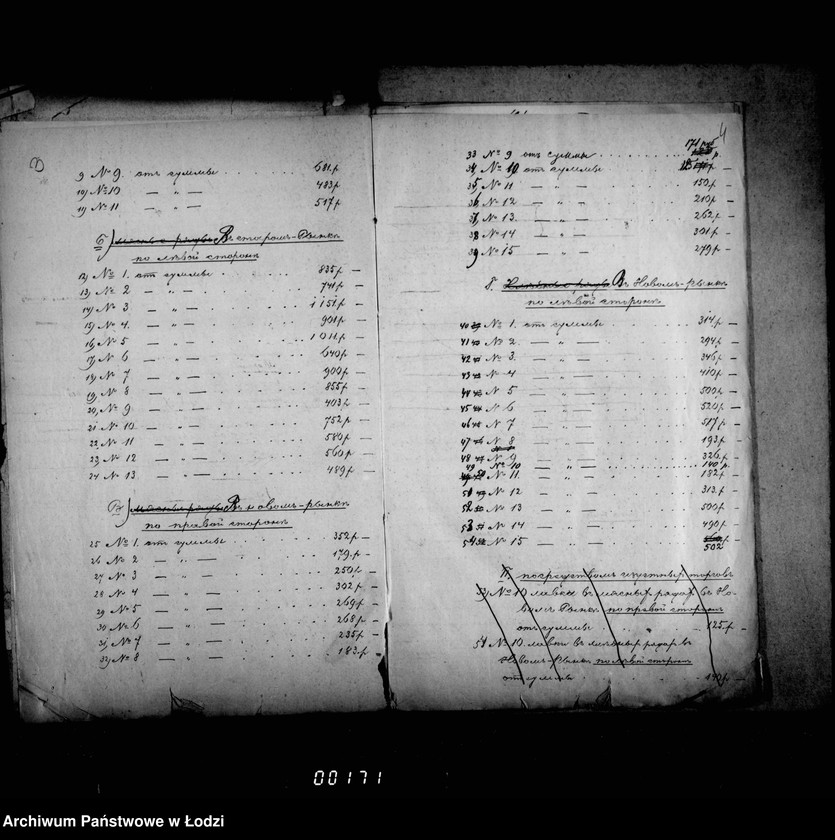 9 № 9. отъ суммы . . . 681 р
10) № 10 — „ — 483 р
11) № 11 — „ — 517 р
б) Въ старомъ-Рынкѣ
по лѣвой сторонѣ
12) № 1. отъ суммы . . . 835 р —
13) № 2 — „ — . . . 741 р —
14) № 3 — „ — . . . 1151 р —
15) № 4. — „ — . . . 901 р —
16) № 5 — „ — . . . 1011 р —
17) № 6 — „ — . . . 640 р —
18) № 7 — „ — . . . 900 р —
19) № 8 — „ — . . . 855 р —
20) № 9 — „ — . . . 403 р —
21 № 10 — „ — . . . 752 р —
22 № 11 — „ — . . . 580 р —
23 № 12 — „ — . . . 560 р —
24 № 13 — „ — . . . 489 р —
Въ новомъ-рынкѣ
по правой сторонѣ
25 № 1. отъ суммы . . . 352 р —
26 № 2 — „ — . . . 179 р —
27 № 3 — „ — . . . 250 р —
28 № 4 — „ — . . . 302 р —
29 № 5 — „ — . . . 269 р —
30 № 6 — „ — . . . 268 р —
31) № 7 — „ — . . . 235 р —
32) № 8 — „ — . . . 183 р —
4
33 № 9 отъ суммы . . . 171 р
34 № 10 отъ суммы
35 № 11 — „ — . . . 150 р —
36 № 12 — „ — . . . 210 р —
37 № 13. — „ — . . . 262 р —
38 № 14 — „ — . . . 301 р —
39 № 15 — „ — . . . 279 р —
Въ Новомъ-рынкѣ
по лѣвой сторонѣ
40 № 1. отъ суммы . . . 314 р —
41 № 2. — „ — . . . 294 р —
42 № 3. — „ — . . . 346 р —
43 № 4 — „ — . . . 410 р —
44 № 5 — „ — . . . 500 р —
45 № 6 — „ — . . . 520 р —
46 № 7 — „ — . . . 517 р —
47 № 8 — „ — . . . 193 р —
48 № 9 — „ — . . . 326 р —
49 № 10 — „ — . . . 140 р —
50 № 11. — „ — . . . 182 р —
51 № 12 — „ — . . . 313 р —
52 № 13 — „ — . . . 500 р —
53 № 14 — „ — . . . 490 р —
54 № 15 — „ — . . . 502 р —
II. посредствомъ изустныхъ торговъ
53) № 10 лавки въ мясныхъ рядахъ въ Но-
вомъ-Рынкѣ по правой сторонѣ
отъ суммы — „ — 125 р —
54 № 10. лавки въ мясныхъ рядахъ въ
Новомъ-Рынкѣ по лѣвой сторонѣ
отъ суммы . . . 140 р —
00171
Archiwum Państwowe w Łodzi